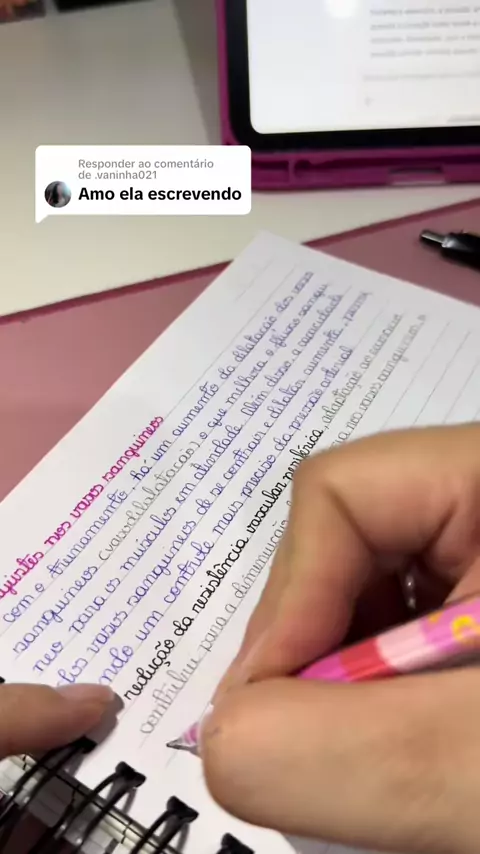 Responder ao comentário
de .vaninha021
Amo ela escrevendo
ajustes nos vasos sanguíneos
com o treinamento, há um aumento da dilatação dos vasos
sanguíneos (vasodilatação), o que melhora o fluxo sanguí
neo para os músculos em atividade. Além disso, a capacidade
dos vasos sanguíneos de se contrair e dilatar aumenta, permi
ndo um controle mais preciso da pressão arterial
redução da resistência vascular periférica, adaptação ao exercício
contribui para a diminuição nos vasos sanguíneos